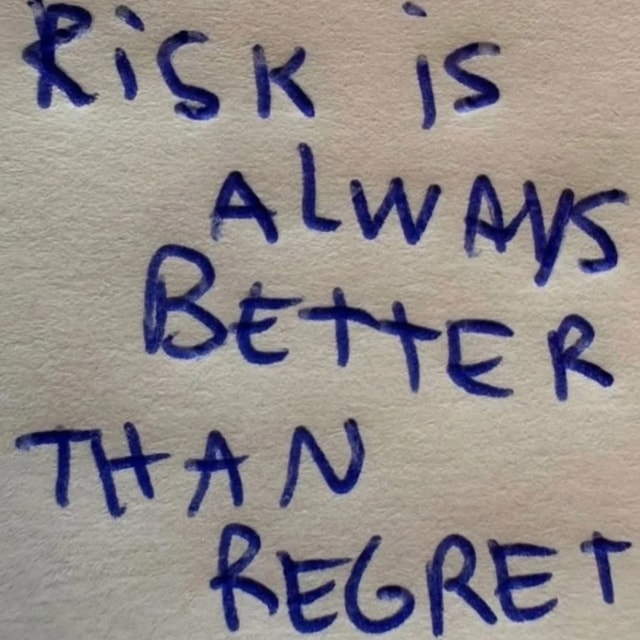 RiSK iS
ALWAYS
BETTER
THAN
REGRET